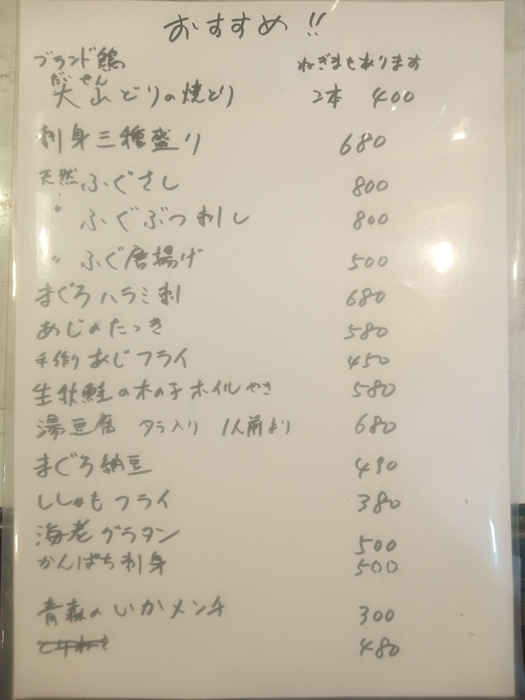 おすすめ!!
ブランド鶏 ねぎまもあります
だいせん
大山どりの焼とり 2本 400
刺身三種盛り 680
天然ふぐさし 800
〃 ふぐぶつ刺し 800
〃 ふぐ唐揚げ 500
まぐろハラミ刺 680
あじのたつき 580
手作りあじフライ 450
生秋鮭の木の子ホイルやき 580
湯豆腐 タラ入り 1人前より 680
まぐろ納豆 490
ししゃもフライ 380
海老グラタン 500
かんぱち刺身 500
青森のいかメンチ 300
480